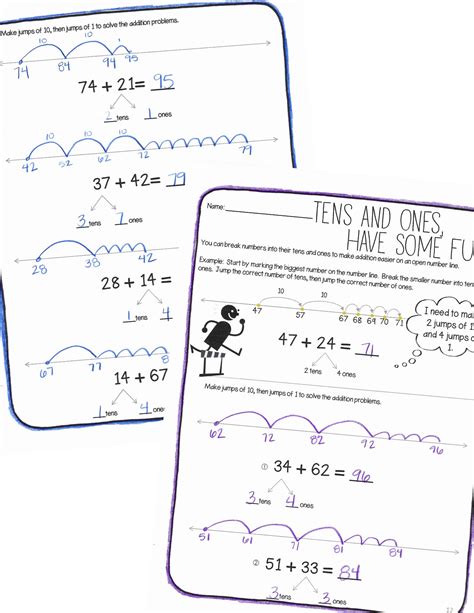 Make jumps of 10, then jumps of 1 to solve the addition problems.
10 10 1
74 84 94 95
74 + 21= 95
2 tens 1 ones
10 10 10
42 52 62 72 79
37 + 42= 79
3 tens 7 ones
28 38 42
28 + 14 =
1 tens 4
67 77 8
14 + 67
1 tens 4 ones
Name:
TENS AND ONES,
HAVE SOME FU
You can break numbers into their tens and ones to make addition easier on an open number line.
Example: Start by marking the biggest number on the number line. Break the smaller number into ten
ones. Jump the correct number of tens, then jump the correct number of ones.
10 10
47 57 67 68 69 70 71
I need to ma
2 jumps of 1
and 4 jumps o
1.
47 + 24 = 71
2 tens 4 ones
Make jumps of 10, then jumps of 1 to solve the addition problems.
62 72 82 92 96
① 34 + 62 = 96
3 tens 4 ones
51 61 71 81 84
② 51 + 33 = 84
3 tens 3 ones